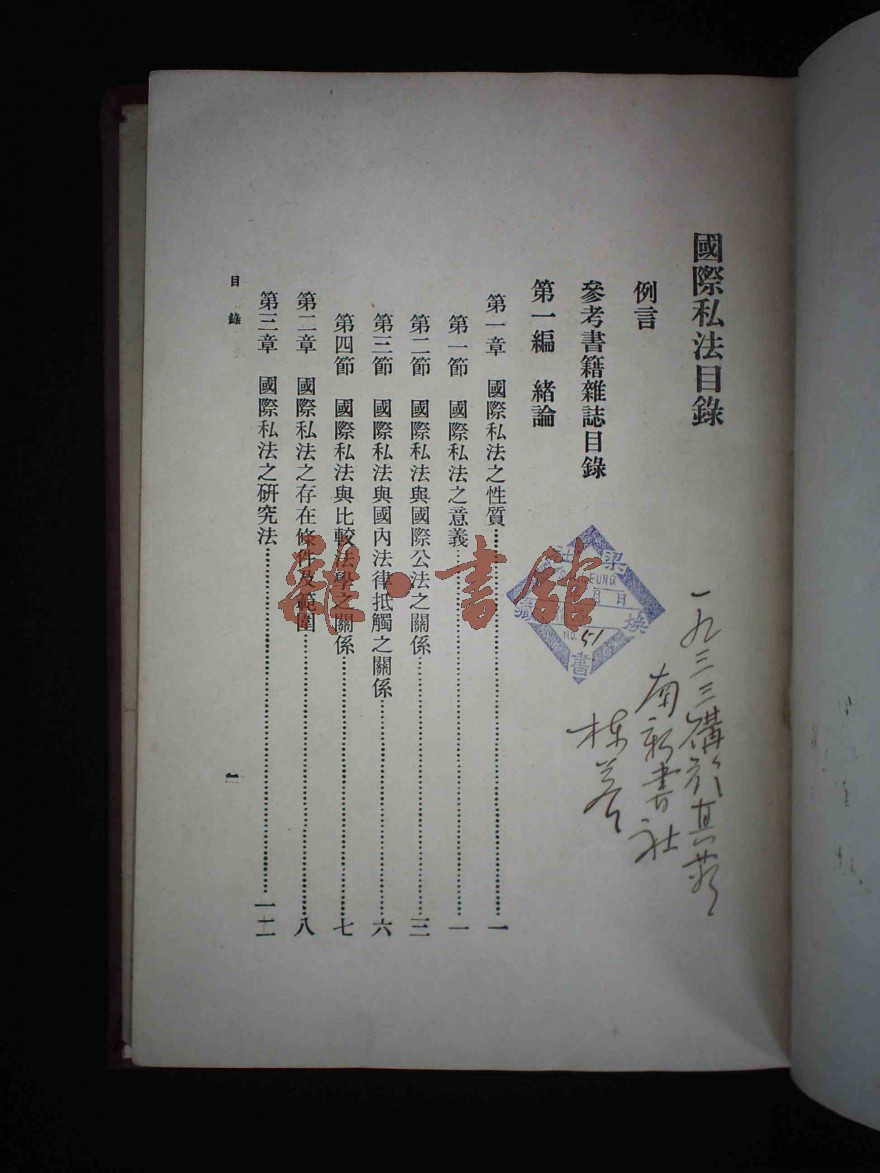 國際私法目錄
例言
參考書籍雜誌目錄
第一編 緒論
第一章 國際私法之性質……一
第一節 國際私法之意義……一
第二節 國際私法與國際公法之關係……三
第三節 國際私法與國內法律抵觸之關係……六
第四節 國際私法與比較法學之關係……七
第二章 國際私法之存在條件及範圍……八
第三章 國際私法之研究法……一二
目錄
一
一九三三購於其昌
南新書社
梁
藏
書
月 日
NO. 51
書館